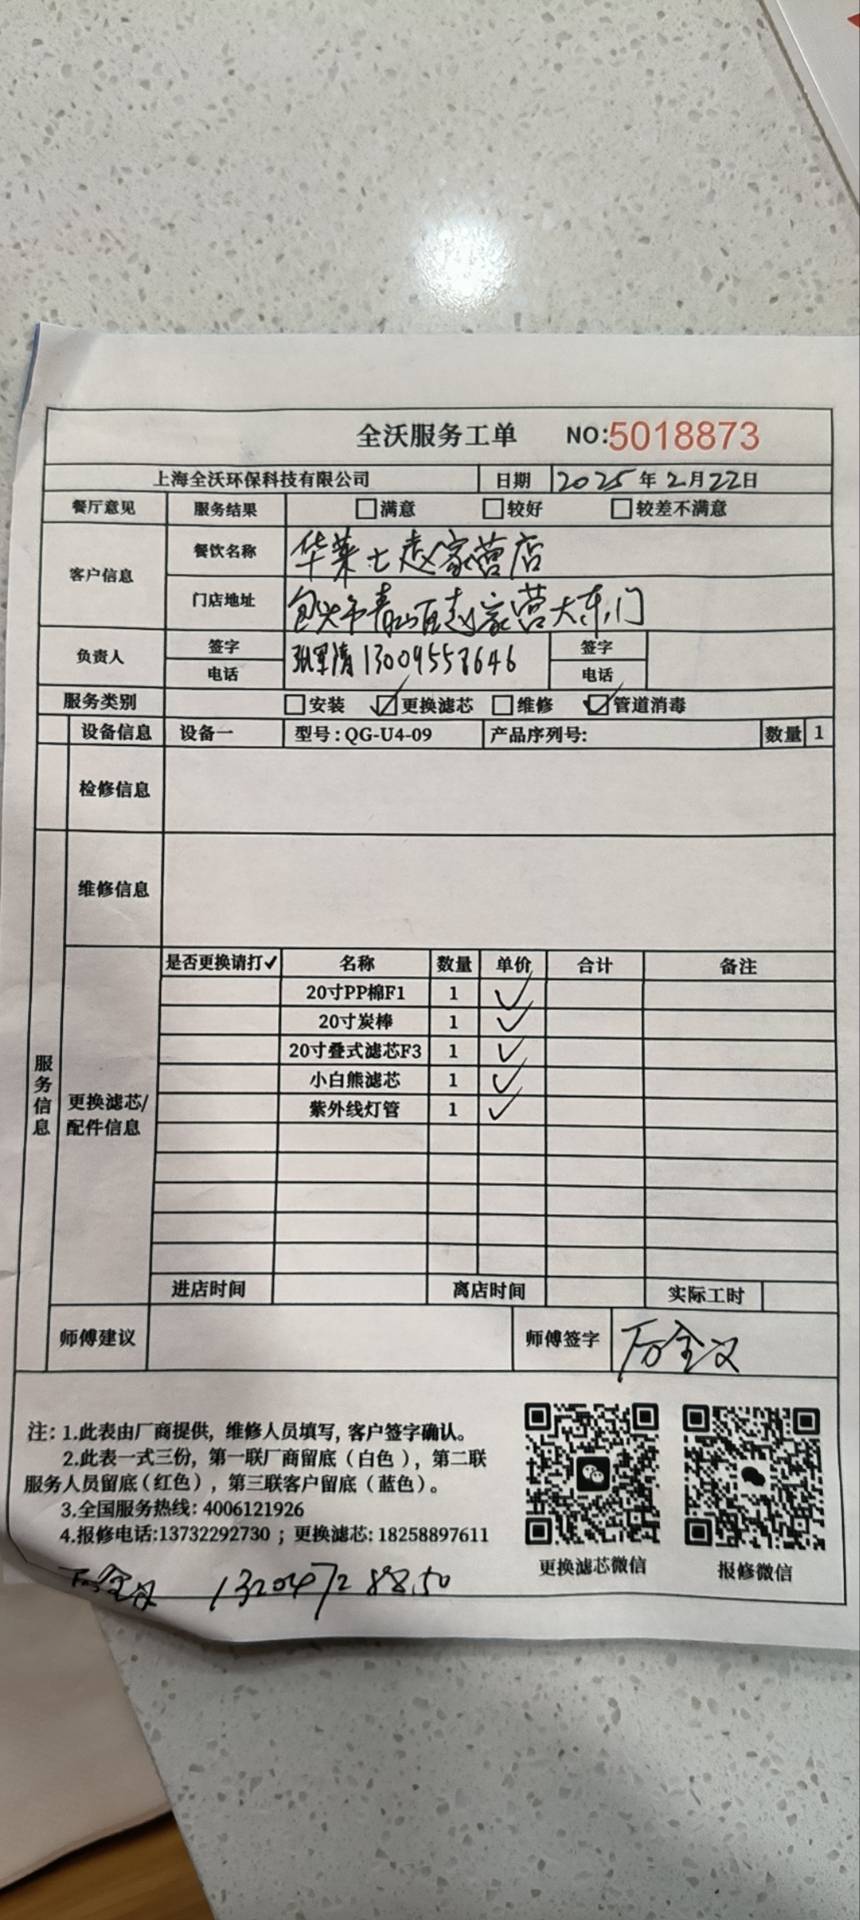 全沃服务工单 NO:5018873
上海全沃环保科技有限公司 日期 2025年2月22日
餐厅意见 服务结果 满意 较好 较差不满意
客户信息 餐饮名称 华莱士赵家营店
门店地址 包头市青山区赵家营大东门
负责人 签字 签字
电话 13009558646 电话
服务类别 安装 ✓更换滤芯 维修 ✓管道消毒
设备信息 设备一 型号:QG-U4-09 产品序列号: 数量 1
检修信息
维修信息
服务信息
更换滤芯/配件信息
是否更换请打✓ 名称 数量 单价 合计 备注
20寸PP棉F1 1 ✓
20寸炭棒 1 ✓
20寸叠式滤芯F3 1 ✓
小白熊滤芯 1 ✓
紫外线灯管 1 ✓
进店时间 离店时间 实际工时
师傅建议 师傅签字
注: 1.此表由厂商提供, 维修人员填写, 客户签字确认。
2.此表一式三份, 第一联厂商留底(白色), 第二联
服务人员留底(红色), 第三联客户留底(蓝色)。
3.全国服务热线: 4006121926
4.报修电话:13732292730 ; 更换滤芯: 18258897611
更换滤芯微信 报修微信